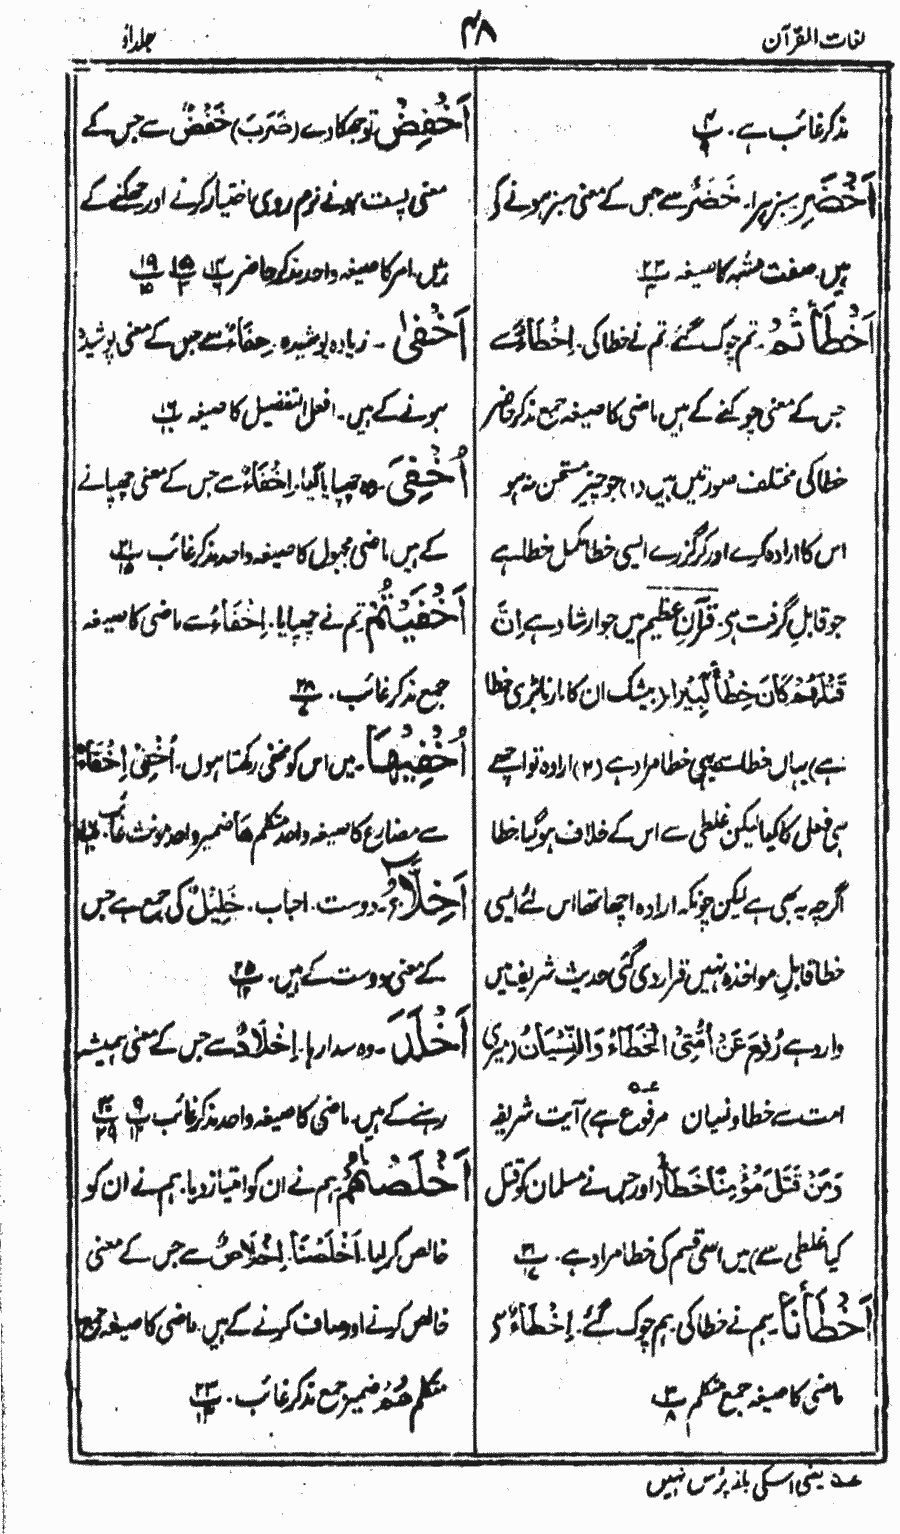 لغات القرآن
۴۸
جلد اوّل
مذکر غائب ہے۔ پ
اَخْضَرِ سبز ہرا۔ خَضَرٌ سے جس کے معنی سبز ہونے کے
ہیں۔ صفت مشبہ کا صیغہ ۲۳
اَخْطَأْتُمْ۔ تم چوک گئے، تم نے خطا کی۔ اِخْطَاءٌ سے
جس کے معنی چوکنے کے ہیں ماضی کا صیغہ جمع مذکر حاضر
خطا کی مختلف صورتیں ہیں (۱) جو چیز مستحسن نہ ہو
اس کا ارادہ کرے اور کر گزرے ایسی خطا مکمل خطا ہے
جو قابلِ گرفت ہے۔ قرآنِ عظیم میں جو ارشاد ہے اِنَّ
قَتْلَهُمْ كَانَ خِطْأً كَبِيْرًا۔ (بیشک ان کا مارنا بڑی خطا
ہے) یہاں خطا سے یہی خطا مراد ہے (۲) ارادہ تو اچھے
ہی فعل کا کیا لیکن غلطی سے اس کے خلاف ہو گیا، خطا
اگرچہ یہ بھی ہے لیکن چونکہ ارادہ اچھا تھا اس لئے ایسی
خطا قابلِ مواخذہ نہیں قرار دی گئی حدیث شریف میں
وارد ہے رُفِعَ عَنْ اُمَّتِیْ الْخَطَاءُ وَالنِّسْیَانُ (میری
امت سے خطا و نسیان مرفوع عہ ہے) آیت شریفہ
وَمَنْ قَتَلَ مُؤْمِنًا خَطَأً (اور جس نے مسلمان کو قتل
کیا غلطی سے) میں اسی قسم کی خطا مراد ہے۔
اَخْطَأْنَا۔ ہم نے خطا کی، ہم چوک گئے۔ اِخْطَاءٌ سے
ماضی کا صیغہ جمع متکلم ۳/۸
اَخْفِضْ تو جھکا دے (ضَرَبَ) خَفْضٌ سے جس کے
معنی پست ہونے نرم روی اختیار کرنے اور جھکنے کے
ہیں۔ امر کا صیغہ واحد مذکر حاضر ۱۴/۶ ۱۵/۳ ۱۹/۱۵
اَخْفٰی۔ زیادہ پوشیدہ۔ خِفَاءٌ سے جس کے معنی پوشیدہ
ہونے کے ہیں۔ افعل التفضیل کا صیغہ ۱۶
اُخْفِیَ۔ وہ چھپایا گیا۔ اِخْفَاءٌ سے جس کے معنی چھپانے
کے ہیں ماضی مجہول کا صیغہ واحد مذکر غائب ۲۱/۱۵
اَخْفَیْتُمْ تم نے چھپایا۔ اِخْفَاءٌ سے ماضی کا صیغہ
جمع مذکر غائب۔ ۲۸/۷
اُخْفِیْهَا۔ میں اس کو مخفی رکھتا ہوں۔ اُخْفِیْ اِخْفَاءٌ
سے مضارع کا صیغہ واحد متکلم ھَا ضمیر واحد مونث غائب۔
اَخِلَّاءُ۔ دوست۔ احباب۔ خَلِیْلٌ کی جمع ہے جس
کے معنی دوست کے ہیں۔ ۲۵/۱۲
اَخْلَدَ۔ وہ سدا رہا۔ اِخْلَادٌ سے جس کے معنی ہمیشہ
رہنے کے ہیں۔ ماضی کا صیغہ واحد مذکر غائب ۹/۱۲ ۳۰/۲۹
اَخْلَصْنٰهُمْ ہم نے ان کو امتیاز دیا۔ ہم نے ان کو
خالص کر لیا۔ اَخْلَصْنَا۔ اِخْلَاصٌ سے جس کے معنی
خالص کرنے اور صاف کرنے کے ہیں۔ ماضی کا صیغہ جمع
متکلم هُمْ ضمیر جمع مذکر غائب۔ ۲۳/۱۳
عہ یعنی اس کی باز پرس نہیں